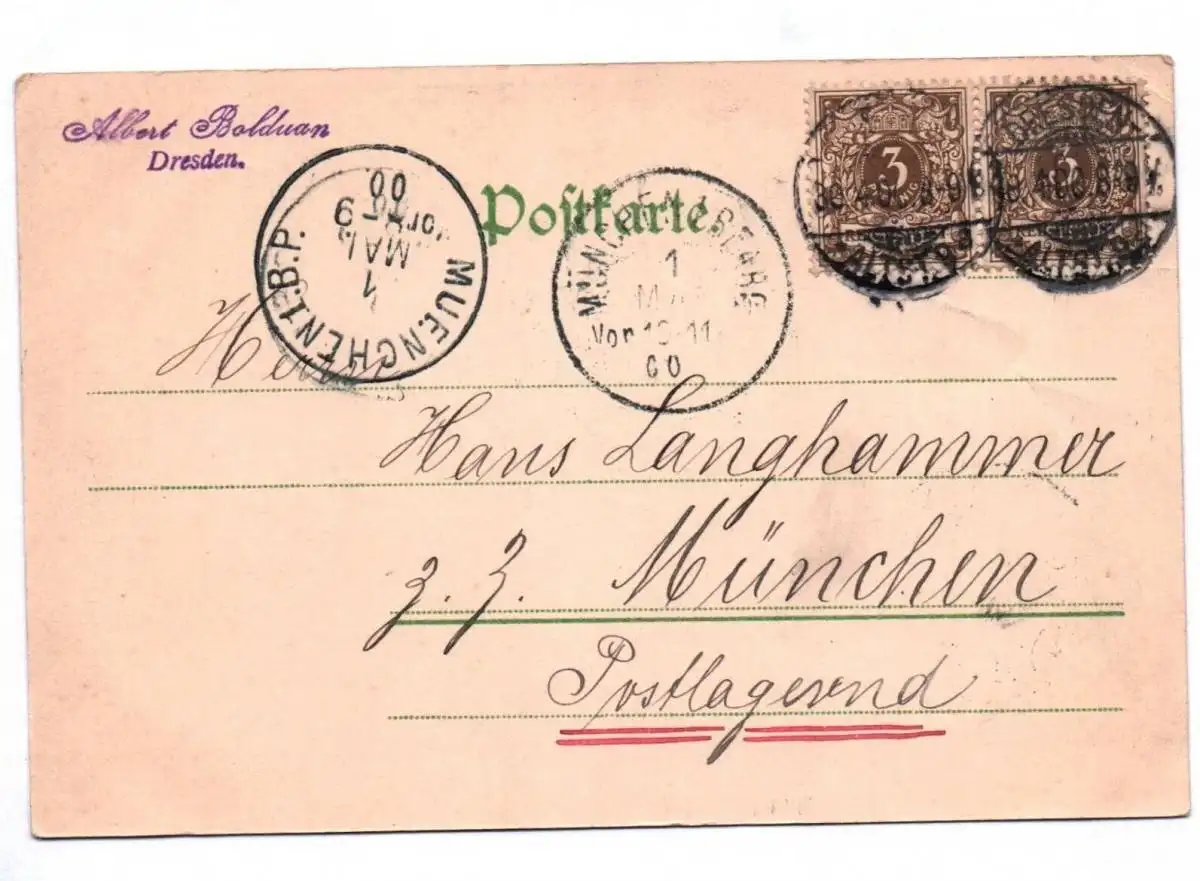 Albert Bolduan
Dresden.
Postkarte.
3
3
DRESDEN
ALTST.
ALTST.
MUENCHEN 1.B.P.
1
MAI
Vor 9
00
1
Vor 10-11
00
Herrn
Hans Langhammer
z. Z. München
Postlagernd